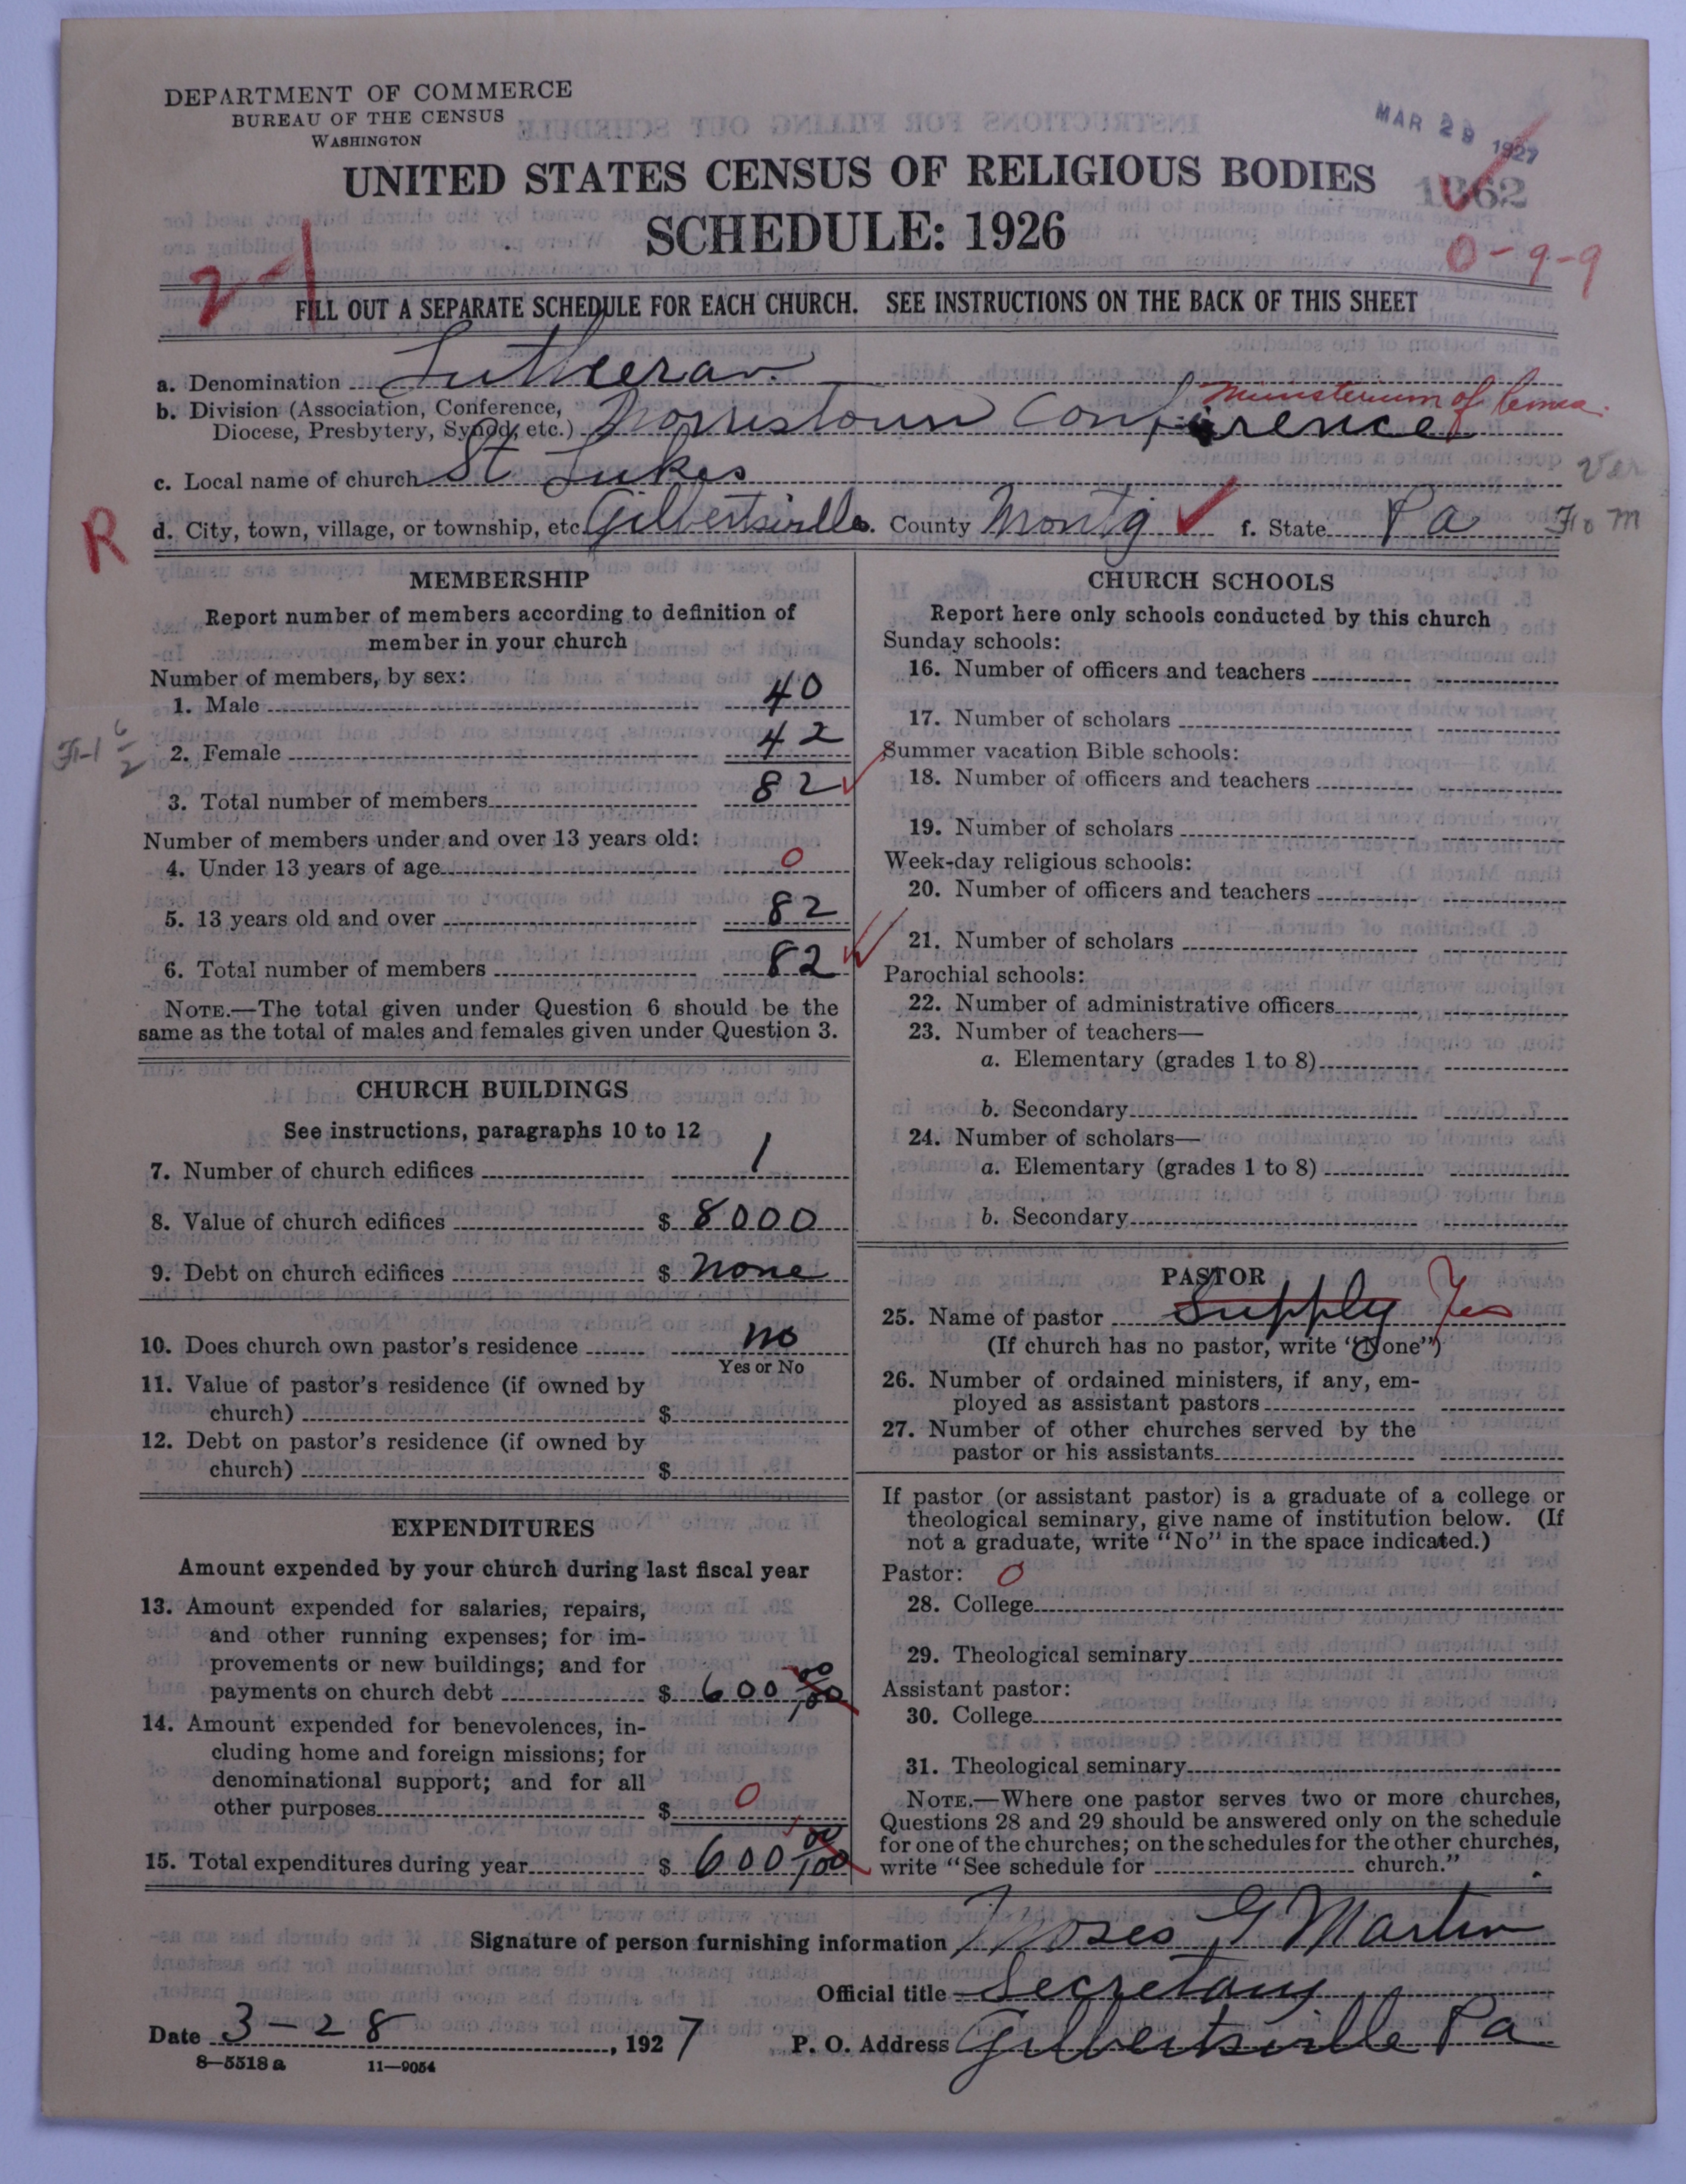 DEPARTMENT OF COMMERCE
BUREAU OF THE CENSUS
WASHINGTON
MAR 29 1927
UNITED STATES CENSUS OF RELIGIOUS BODIES
SCHEDULE: 1926
2-1
0-9-9
FILL OUT A SEPARATE SCHEDULE FOR EACH CHURCH. SEE INSTRUCTIONS ON THE BACK OF THIS SHEET
a. Denomination Lutheran.
Ministerium of Penna.
b. Division (Association, Conference,
Diocese, Presbytery, Synod, etc.) Norristown Conference
c. Local name of church St Lukes
R d. City, town, village, or township, etc. Gilbertsville e. County Montg f. State Pa
MEMBERSHIP
Report number of members according to definition of
member in your church
Number of members, by sex:
1. Male 40
2. Female 42
3. Total number of members 82
Number of members under and over 13 years old:
4. Under 13 years of age 0
5. 13 years old and over 82
6. Total number of members 82
NOTE.—The total given under Question 6 should be the
same as the total of males and females given under Question 3.
CHURCH BUILDINGS
See instructions, paragraphs 10 to 12
7. Number of church edifices 1
8. Value of church edifices $ 8000
9. Debt on church edifices $ none
10. Does church own pastor's residence no
Yes or No
11. Value of pastor's residence (if owned by
church) $
12. Debt on pastor's residence (if owned by
church) $
EXPENDITURES
Amount expended by your church during last fiscal year
13. Amount expended for salaries, repairs,
and other running expenses; for im-
provements or new buildings; and for
payments on church debt $ 600 00/100
14. Amount expended for benevolences, in-
cluding home and foreign missions; for
denominational support; and for all
other purposes $ 0
15. Total expenditures during year $ 600 00/100
CHURCH SCHOOLS
Report here only schools conducted by this church
Sunday schools:
16. Number of officers and teachers
17. Number of scholars
Summer vacation Bible schools:
18. Number of officers and teachers
19. Number of scholars
Week-day religious schools:
20. Number of officers and teachers
21. Number of scholars
Parochial schools:
22. Number of administrative officers
23. Number of teachers—
a. Elementary (grades 1 to 8)
b. Secondary
24. Number of scholars—
a. Elementary (grades 1 to 8)
b. Secondary
PASTOR
25. Name of pastor Supply Yes
(If church has no pastor, write "None")
26. Number of ordained ministers, if any, em-
ployed as assistant pastors
27. Number of other churches served by the
pastor or his assistants
If pastor (or assistant pastor) is a graduate of a college or
theological seminary, give name of institution below. (If
not a graduate, write "No" in the space indicated.)
Pastor: 0
28. College
29. Theological seminary
Assistant pastor:
30. College
31. Theological seminary
NOTE.—Where one pastor serves two or more churches,
Questions 28 and 29 should be answered only on the schedule
for one of the churches; on the schedules for the other churches,
write "See schedule for church."
Signature of person furnishing information Moses G Martin
Official title Secretary
Date 3-28, 1927 P. O. Address Gilbertsville Pa
8—5518 a 11—9054